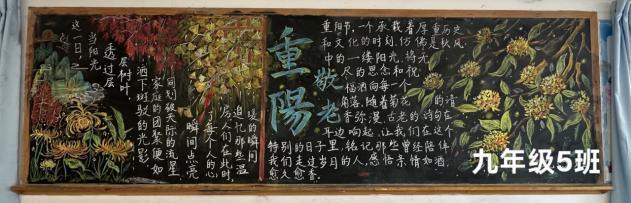 这一日
当阳光
透过层
层树叶
洒下斑驳的光影
家庭的团聚便如
同划破天际的流星
瞬间点亮
了每个人的心
房人们在此时
追忆那些温
馨的瞬间
重陽
敬老
重阳节,一个承载着厚重历史
和文化的时刻,仿佛是秋风
中的一缕阳光,将无
尽的思念和祝
福洒向每一个
角落,随着菊花的清
香弥漫,古老的诗句在
耳边响起,让我们在这个
特别的日子里,铭记那些曾经陪伴
我们走过岁月的人,感悟亲情如酒
愈久愈香。
九年级5班